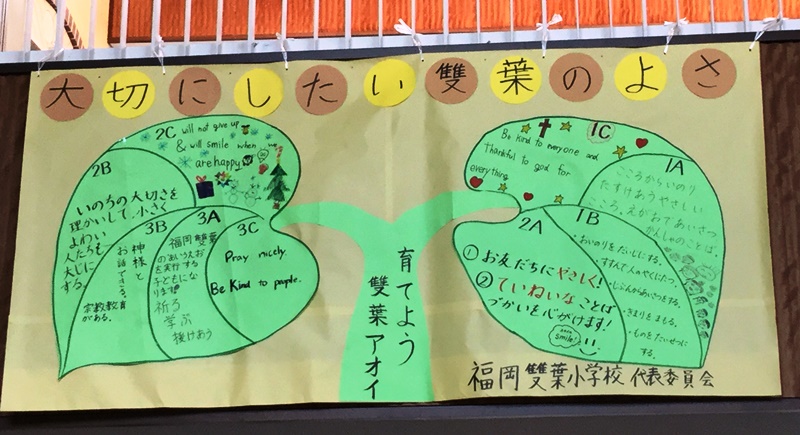 大切にしたい雙葉のよさ
2C will not give up
& will smile when we
are happy
2B
いのちの大切さを
理かいして、小さく
よわい
人たちも
大じに
する。
3B
神様と
お話できる。
宗教教育
がある。
3A
福岡雙葉
のあいうえお
を実行する
子どもにな
ります
祈る
学ぶ
援けあう
3C
Pray nicely.
Be Kind to people.
育てよう
雙葉アオイ
1C
Be kind to everyone and
thankful to god for
everything
1A
こころからいのり
たすけあうやさしい
こころ。えがおであいさつ
かんしゃのことば。
2A
①お友だちにやさしく!
②ていねいなことば
づかいを心がけます!
smile!
1B
・おいのりをだいじにする。
・すすんで人のやくにたつ。
・じぶんからあいさつをする。
・きまりをまもる。
・ものをたいせつに
する。
福岡雙葉小学校 代表委員会